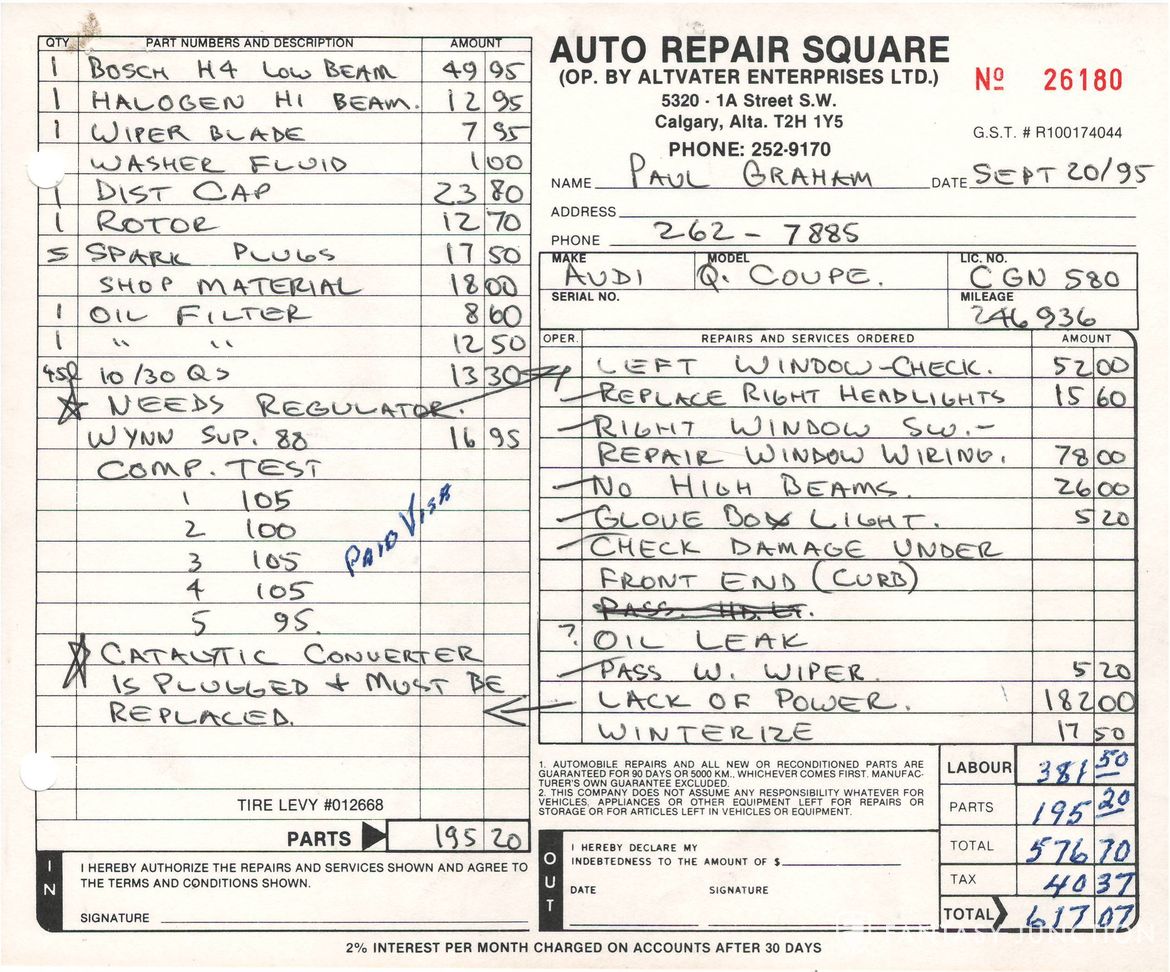 QTY PART NUMBERS AND DESCRIPTION AMOUNT
1 BOSCH H4 LOW BEAM 49 95
1 HALOGEN HI BEAM. 12 95
1 WIPER BLADE 7 95
WASHER FLUID 1 00
1 DIST CAP 23 80
1 ROTOR 12 70
5 SPARK PLUGS 17 50
SHOP MATERIAL 18 00
1 OIL FILTER 8 60
1 " " 12 50
10/30 QS 13 30
NEEDS REGULATOR.
WYNN SUP. 88 16 95
COMP. TEST
1 105
2 100
3 105
4 105
5 95.
PAID VISA
CATALYTIC CONVERTER
IS PLUGGED & MUST BE
REPLACED.
TIRE LEVY #012668
PARTS 195 20
IN
I HEREBY AUTHORIZE THE REPAIRS AND SERVICES SHOWN AND AGREE TO
THE TERMS AND CONDITIONS SHOWN.
SIGNATURE
AUTO REPAIR SQUARE
(OP. BY ALTVATER ENTERPRISES LTD.)
5320 - 1A Street S.W.
Calgary, Alta. T2H 1Y5
PHONE: 252-9170
Nº 26180
G.S.T. # R100174044
NAME PAUL GRAHAM DATE SEPT 20/95
ADDRESS
PHONE 262 - 7885
MAKE MODEL LIC. NO.
AUDI Q. COUPE. CGN 580
SERIAL NO. MILEAGE
246936
OPER. REPAIRS AND SERVICES ORDERED AMOUNT
LEFT WINDOW-CHECK. 52 00
REPLACE RIGHT HEADLIGHTS 15 60
RIGHT WINDOW SW.-
REPAIR WINDOW WIRING. 78 00
NO HIGH BEAMS. 26 00
GLOVE BOX LIGHT. 5 20
CHECK DAMAGE UNDER
FRONT END (CURB)
PASS. HD. LT.
? OIL LEAK
PASS W. WIPER. 5 20
LACK OF POWER. 182 00
WINTERIZE 17 50
1. AUTOMOBILE REPAIRS AND ALL NEW OR RECONDITIONED PARTS ARE
GUARANTEED FOR 90 DAYS OR 5000 KM., WHICHEVER COMES FIRST. MANUFAC-
TURER'S OWN GUARANTEE EXCLUDED.
2. THIS COMPANY DOES NOT ASSUME ANY RESPONSIBILITY WHATEVER FOR
VEHICLES, APPLIANCES OR OTHER EQUIPMENT LEFT FOR REPAIRS OR
STORAGE OR FOR ARTICLES LEFT IN VEHICLES OR EQUIPMENT.
LABOUR 381 50
PARTS 195 20
TOTAL 576 70
TAX 40 37
TOTAL 617 07
OUT
I HEREBY DECLARE MY
INDEBTEDNESS TO THE AMOUNT OF $
DATE SIGNATURE
2% INTEREST PER MONTH CHARGED ON ACCOUNTS AFTER 30 DAYS
FANTASY JUNCTION